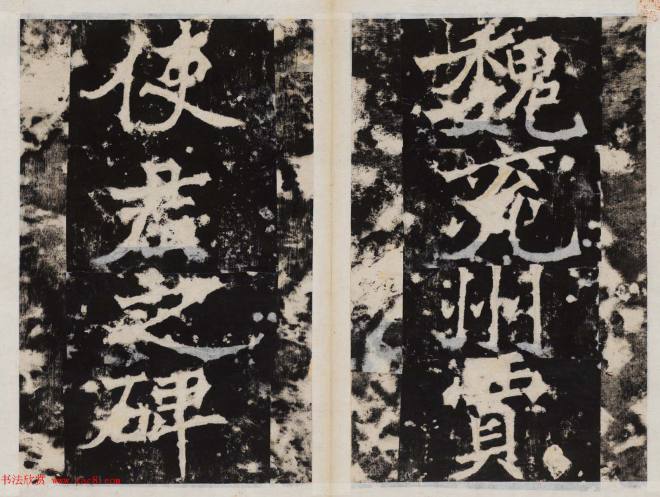 魏兖州賈
使君之碑
书法欣赏 www.yac8.com